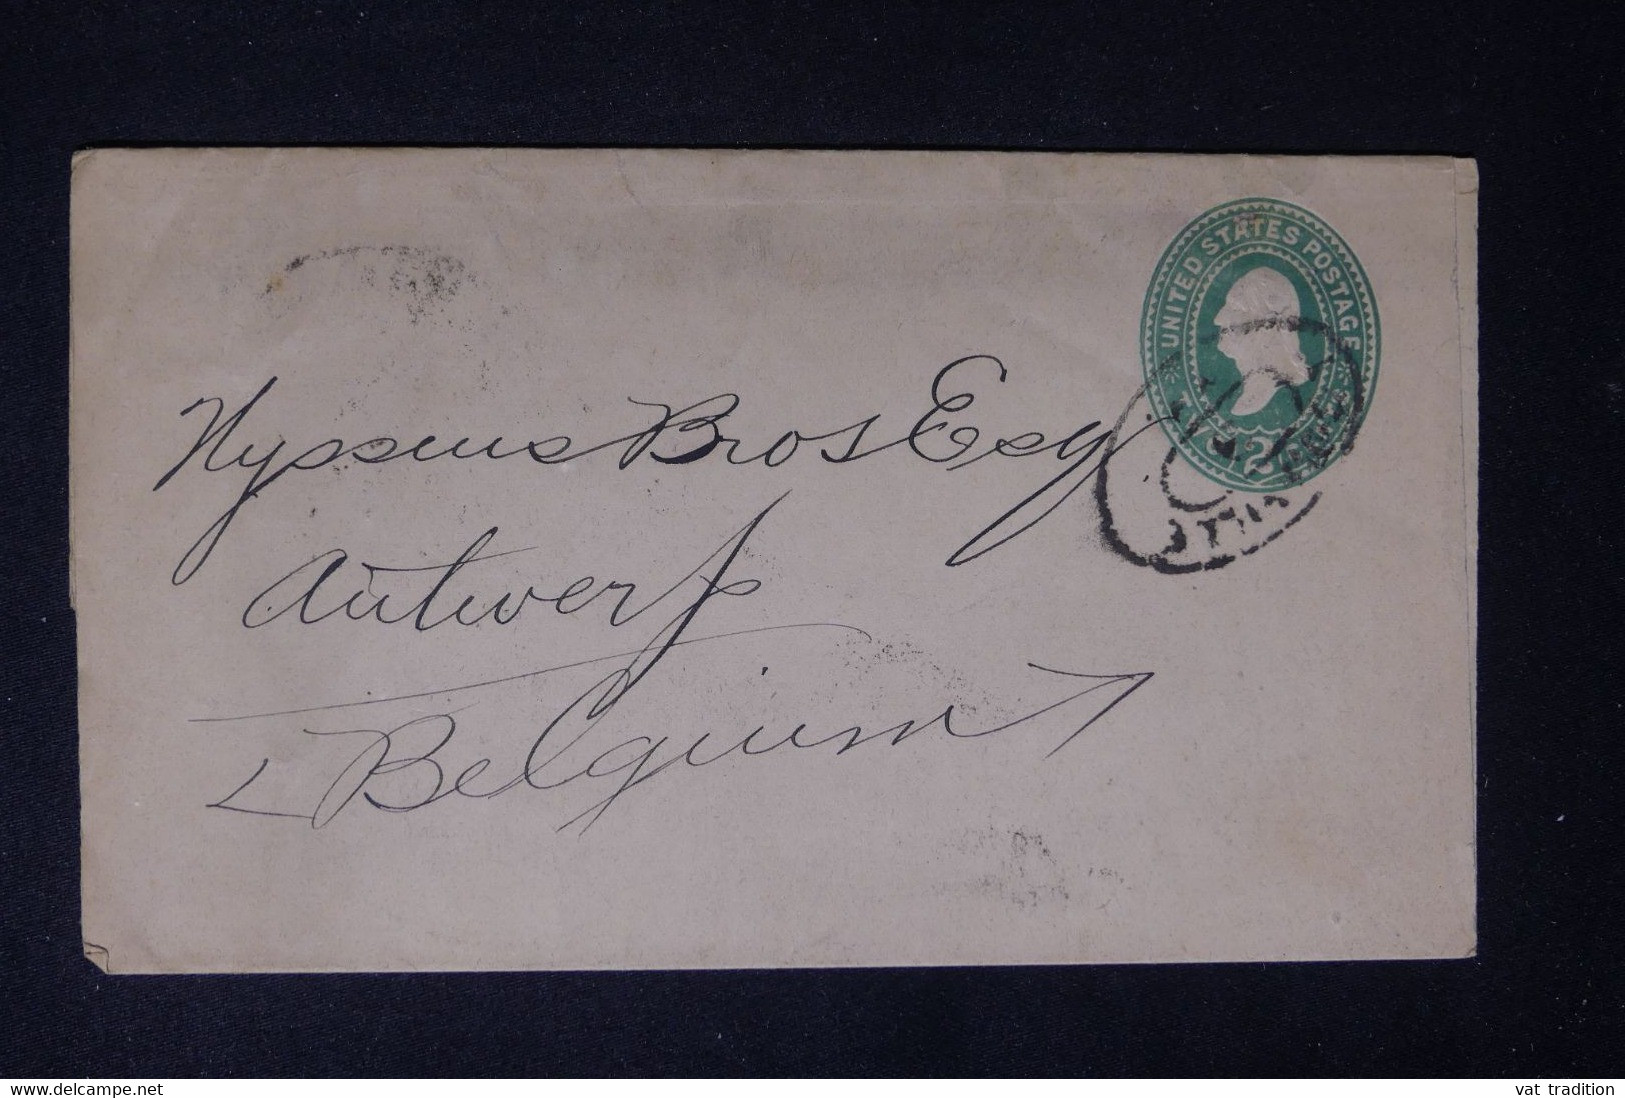 UNITED STATES POSTAGE
2
Nyssens Bros Esq
Antwerp
Belgium
www.delcampe.net
vat_tradition